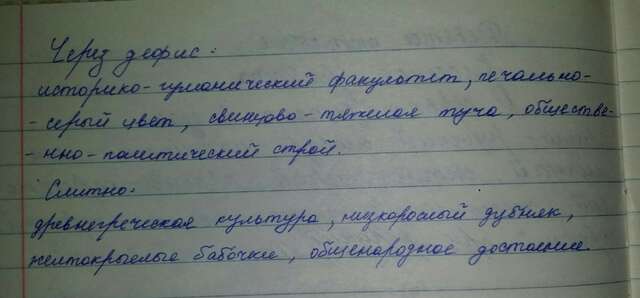 Через дефис:
историко-гуманический факультет, печально-
-серый цвет, свинцово-тяжелая туча, обществе-
-нно-политический строй.
Слитно:
древнегреческая культура, низкорослый дубняк,
желтокрылые бабочки, общенародное достояние.